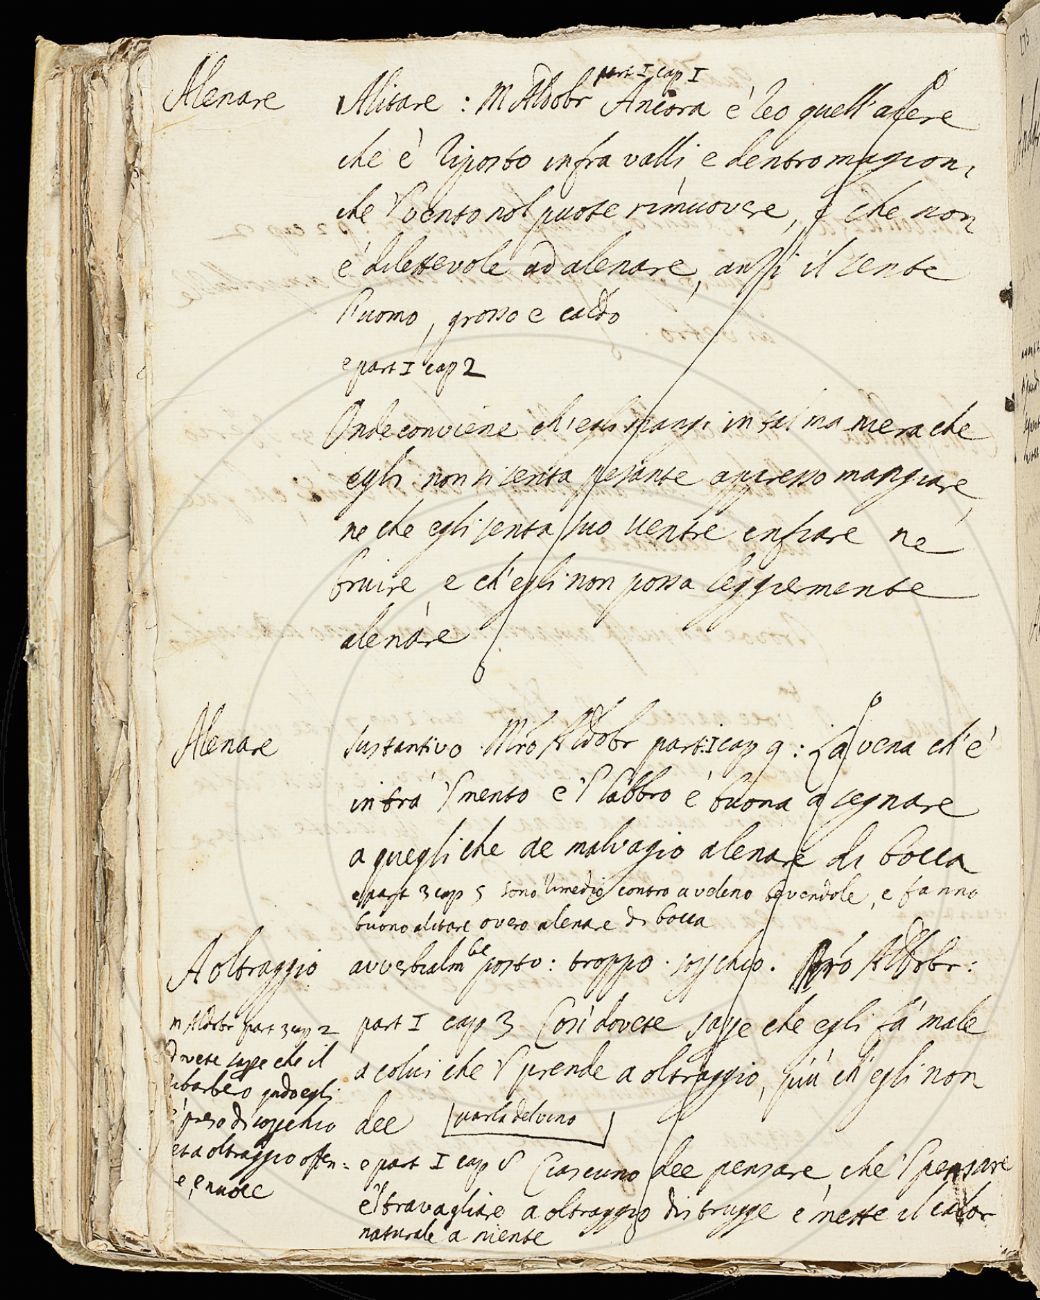 Alenare
part I cap I
Alitare : M Aldobr Ancora è reo quell'aere
che è riposto infra valli e dentro magion,
che 'l vento nol puote rimuovere, e che non
è dilettevole ad alenare, anzi il sente
l'uomo, grosso e caldo
e part I cap 2
Onde conviene ch'egli mangi in tal maniera che
egli non si senta pesante appresso mangiare,
ne che egli senta suo ventre enfiare né
bruire, e ch'egli non possa leggiemente
alenare
Alenare
sustantivo Mro Aldobr part I cap 9 : La vena ch'è
infra 'l mento e 'l labbro è buona a segnare
a quegli che ae malvagio alenare di bocca
e part 3 cap 5 sono rimedio contro a veleno bevendole, e fanno
buono alitare overo alenare di bocca
A oltraggio
avverbialmte posto : troppo . soperchio . Mro Aldobr :
part I cap 3 Così dovete sape che egli fa male
a colui che 'l prende a oltraggio, più ch'egli non
dee parla del vino
e part I cap Ciascuno dee pensare, che 'l pensare
e 'l travagliare a oltraggio distrugge e mette il calor
naturale a niente
M Aldobr part 3 cap 2
Dovete sape che il
egli
preso di soperchio
et a oltraggio offen=
e, e nuoce